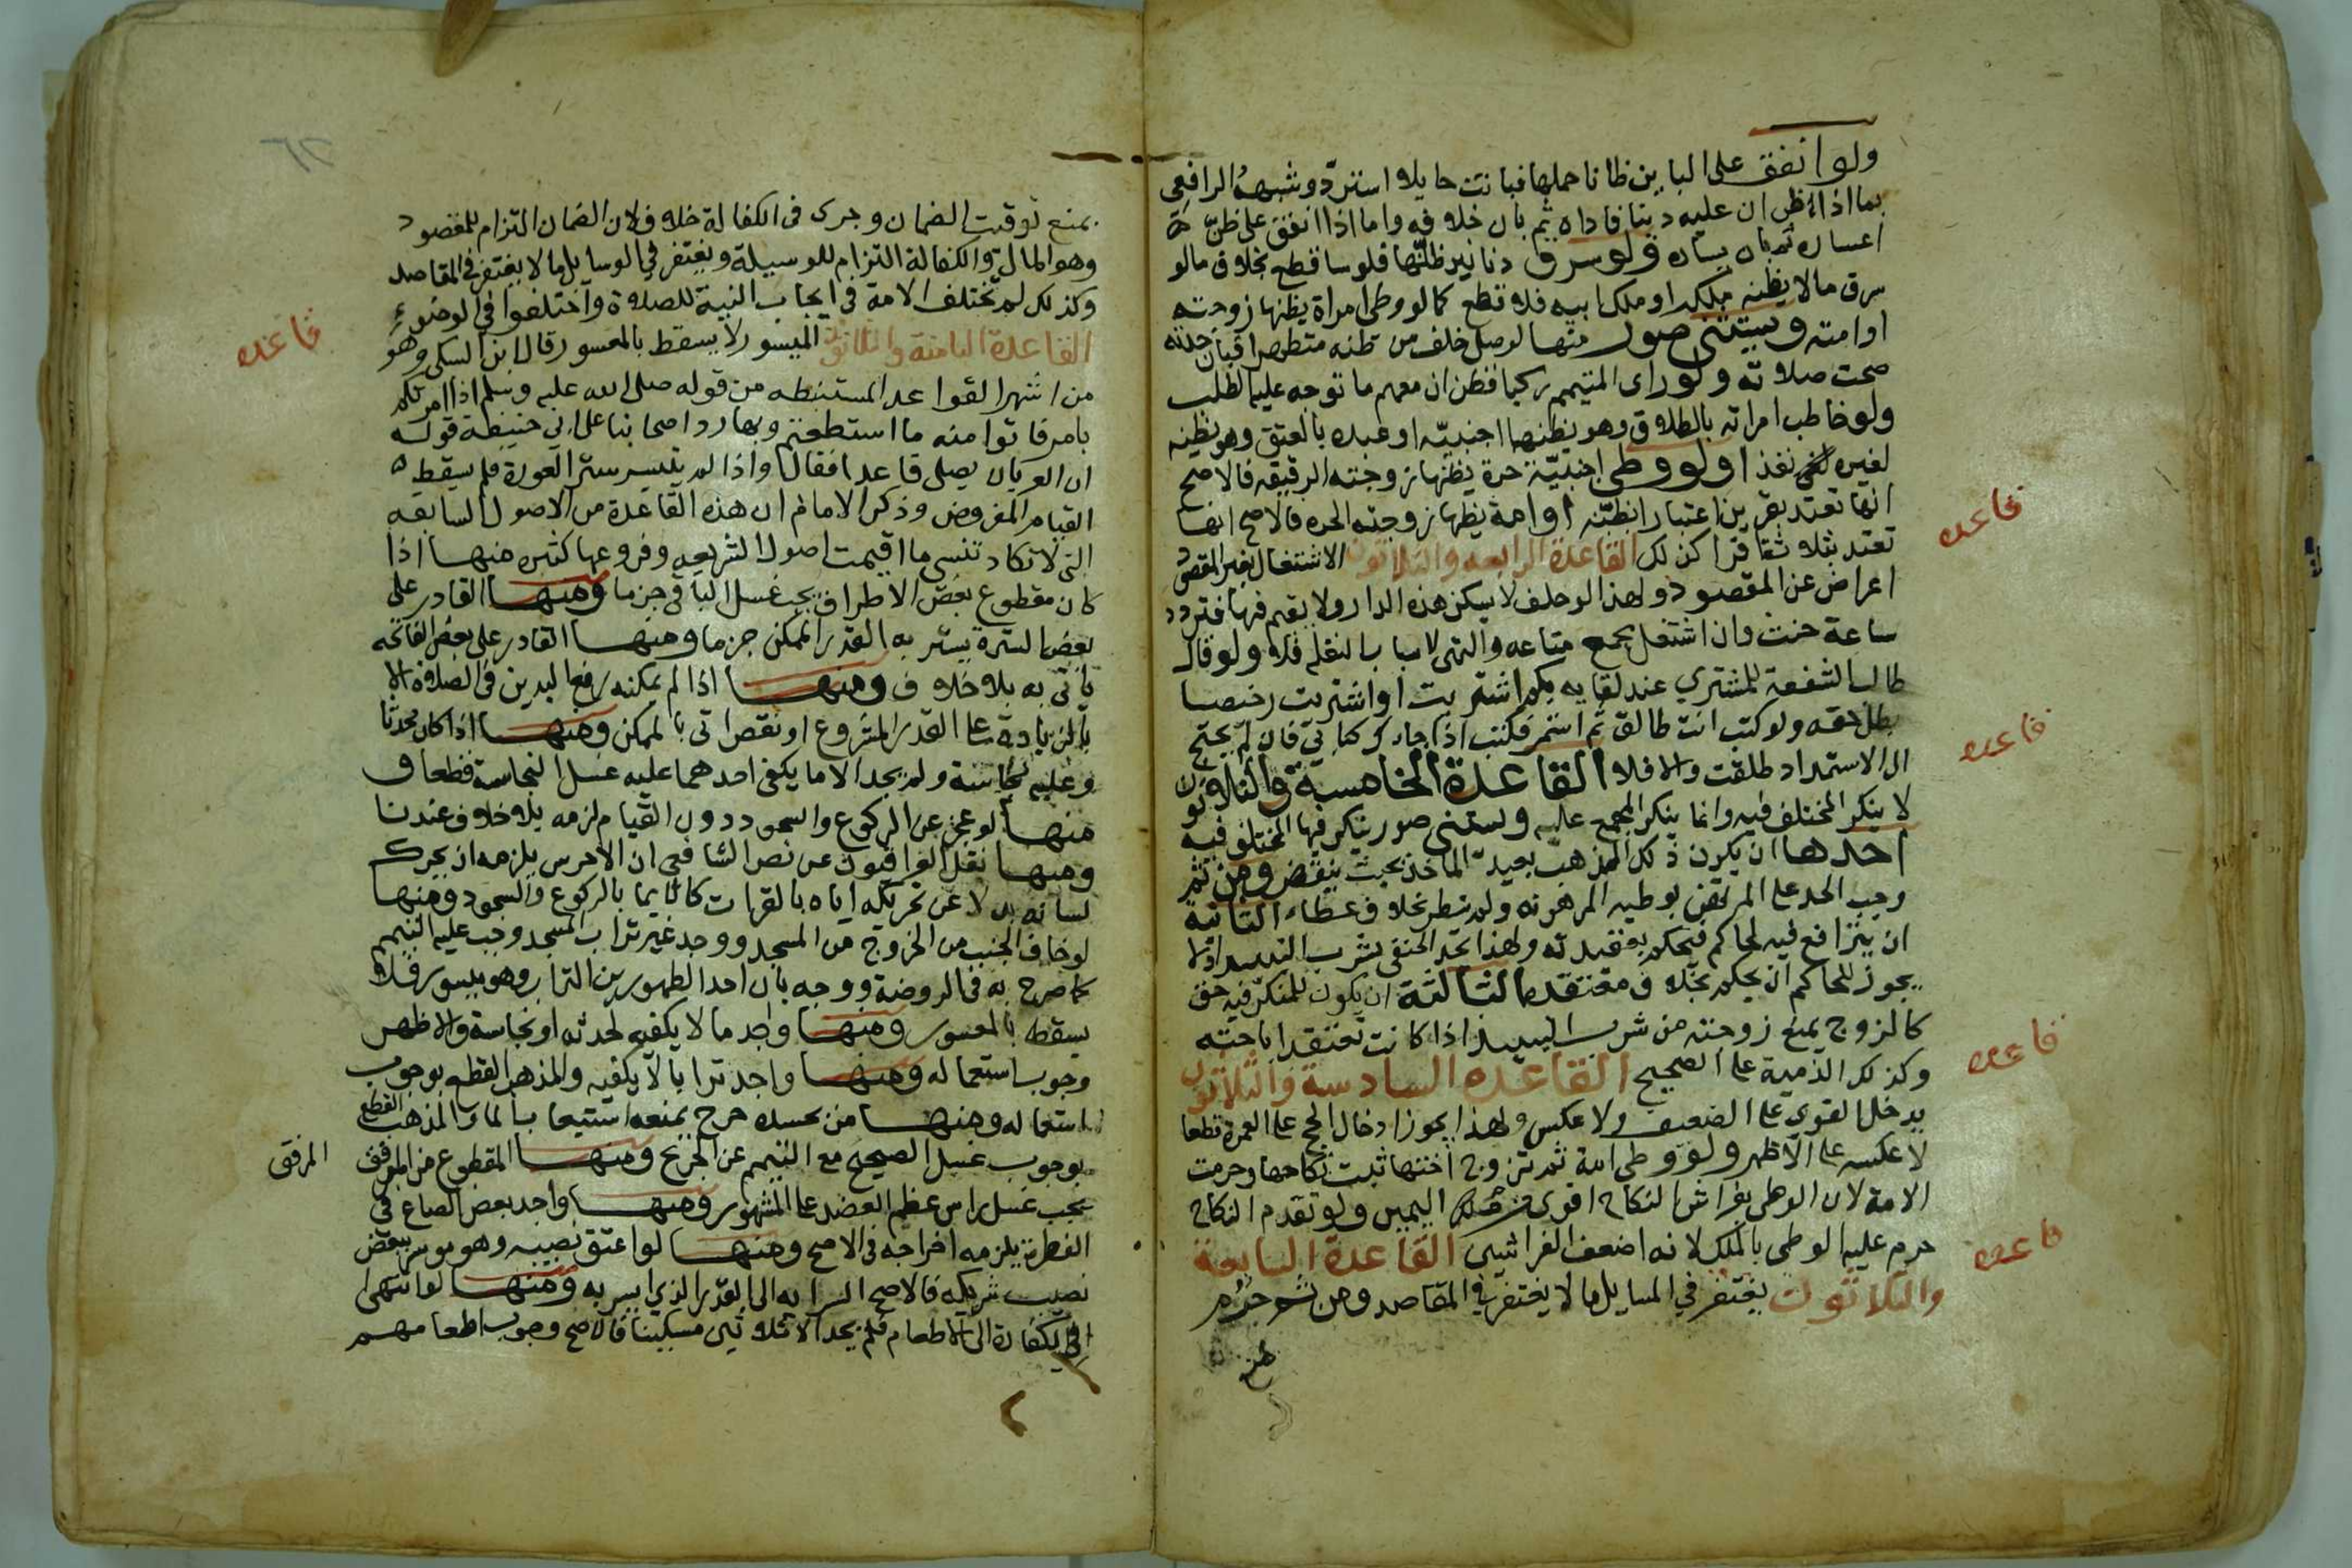 ولو انفق على الباين ظانا حملها فبانت حايلا استرد وشبهه الرافعي
بما اذا ظن ان عليه دينا فاداه ثم بان خلافه واما اذا انفق على ظن
اعساره ثم بان يساره ولو سرق دنانير ظنها فلوسا قطع بخلاف مالو
سرق مالا يظنه ملكه او ملك ابيه فلا تقطع كما لو وطى امراة يظنها زوجته
او امته ويستثنى صور منها لو صلى خلف من ظنه متطهرا فبان حدثه
صحت صلاته ولو راى المتيمم ركبا فظن ان معهم ما توجه عليه الطلب
ولو خاطب امراته بالطلاق وهو يظنها اجنبيه او عبده بالعتق وهو يظنه
لغيره نفذ ولو وطى اجنبية حرة يظنها زوجته الرقيقه فالاصح
انها تعتد بقرين اعتبارا بظنه او امة يظنها زوجته الحره فالاصح انها
تعتد بثلاثة اقرا كذلك القاعدة الرابعه والثلاثون الاشتغال بغير المقصود
اعراض عن المقصود ولهذا لو حلف لا يسكن هذه الدار ولا يقيم فيها فتردد
ساعة حنث وان اشتغل بجمع متاعه والتهى لاسباب النقلة فلا ولو قال
طالب الشفعة للمشتري عند لقايه بكم اشتريت او اشتريت رخيصا
بطل حقه ولو كتب انت طالق ثم استمر فكتب اذا جاءك كتابي فان لم يحتج
الى الاستمداد طلقت والا فلا القاعدة الخامسة والثلاثون
لا ينكر المختلف فيه وانما ينكر المجمع عليه ويستثنى صور ينكر فيها المختلف فيه
احدها ان يكون ذلك المذهب بعيد الماخذ بحيث ينقض ومن ثم
وجب الحد على المرتهن بوطيه المرهونه ولم ينظر لخلاف عطاء الثانية
ان يترافع فيه لحاكم فيحكم بعقيدته ولهذا يحد الحنفي بشرب النبيذ اذ لا
يجوز للحاكم ان يحكم بخلاف معتقده الثالثة ان يكون للمنكر فيه حق
كالزوج يمنع زوجته من شرب النبيذ اذا كانت تعتقد اباحته
وكذلك الذمية على الصحيح القاعده السادسة والثلاثون
يدخل القوي على الضعيف ولا عكس ولهذا يجوز ادخال الحج على العمرة قطعا
لا عكسه على الاظهر ولو وطى امة ثم تزوج اختها ثبت نكاحها وحرمت
الامة لان الوطى بفراش النكاح اقوى من ملك اليمين ولو تقدم النكاح
حرم عليه الوطى بالملك لانه اضعف الفراشين القاعدة السابعة
والثلاثون يغتفر في الوسايل ما لا يغتفر في المقاصد ومن ثم جزم
قاعده
قاعده
قاعده
قاعده
يمنع توقيت الضمان وجرى في الكفالة خلاف لان الضمان التزام للمقصود
وهو المال والكفالة التزام للوسيلة ويغتفر في الوسايل ما لا يغتفر في المقاصد
وكذلك لم تختلف الامة في ايجاب النية للصلاة واختلفوا في الوضوء
القاعدة الثامنة والثلاثون الميسور لا يسقط بالمعسور قال ابن السبكي وهو
من اشهر القواعد المستنبطه من قوله صلى الله عليه وسلم اذا امرتكم
بامر فاتوا منه ما استطعتم وبها رد اصحابنا على ابي حنيفة قوله
ان العريان يصلي قاعدا فقال واذا لم يتيسر ستر العورة فلم يسقط
القيام المفروض وذكر الامام ان هذه القاعدة من الاصول السابعه
التي لا تكاد تنسى ما اقيمت اصول الشريعه وفروعها كثيره منها اذا
كان مقطوع بعض الاطراف يجب غسل الباقي جزما ومنها القادر على
بعض السترة يستر به القدر الممكن جزما ومنها القادر على بعض الفاتحه
ياتي به بلا خلاف ومنها اذا لم يمكنه رفع اليدين في الصلاة الا
بالزيادة على القدر المشروع او نقص اتى بالممكن ومنها اذا كان محدثا
وعليه نجاسة ولم يجد الا ما يكفي احدهما عليه غسل النجاسة قطعا و
منها لو عجز عن الركوع والسجود دون القيام لزمه بلا خلاف عندنا
ومنها نقل العراقيون عن نص الشافعي ان الاخرس يلزمه ان يحرك
لسانه بدلا عن تحريكه اياه بالقراة كالايما بالركوع والسجود ومنها
لو خاف الجنب من الخروج من المسجد ووجد غير تراب المسجد وجب عليه التيمم
كما صرح به في الروضة ووجه بان احد الطهورين التراب وهو ميسور فلا
يسقط بالمعسور ومنها واجد ما لا يكفيه لحدثه او نجاسة والاظهر
وجوب استعماله ومنها واجد ترابا لا يكفيه والمذهب القطع بوجوب
استعماله ومنها من بجسده جرح يمنعه استيعاب الماء والمذهب القطع
بوجوب غسل الصحيح مع التيمم عن الجريح ومنها المقطوع من المرفق
المرفق
يجب غسل راس عظم العضد على المشهور ومنها واجد بعض الصاع في
الفطرة يلزمه اخراجه في الاصح ومنها لو اعتق نصيبه وهو موسر ببعض
نصيب شريكه فالاصح السرايه الى القدر الذي ايسر به ومنها لو انتهى
في الكفارة الى الاطعام فلم يجد الا ثلاثين مسكينا فالاصح وجوب اطعامهم
قاعده